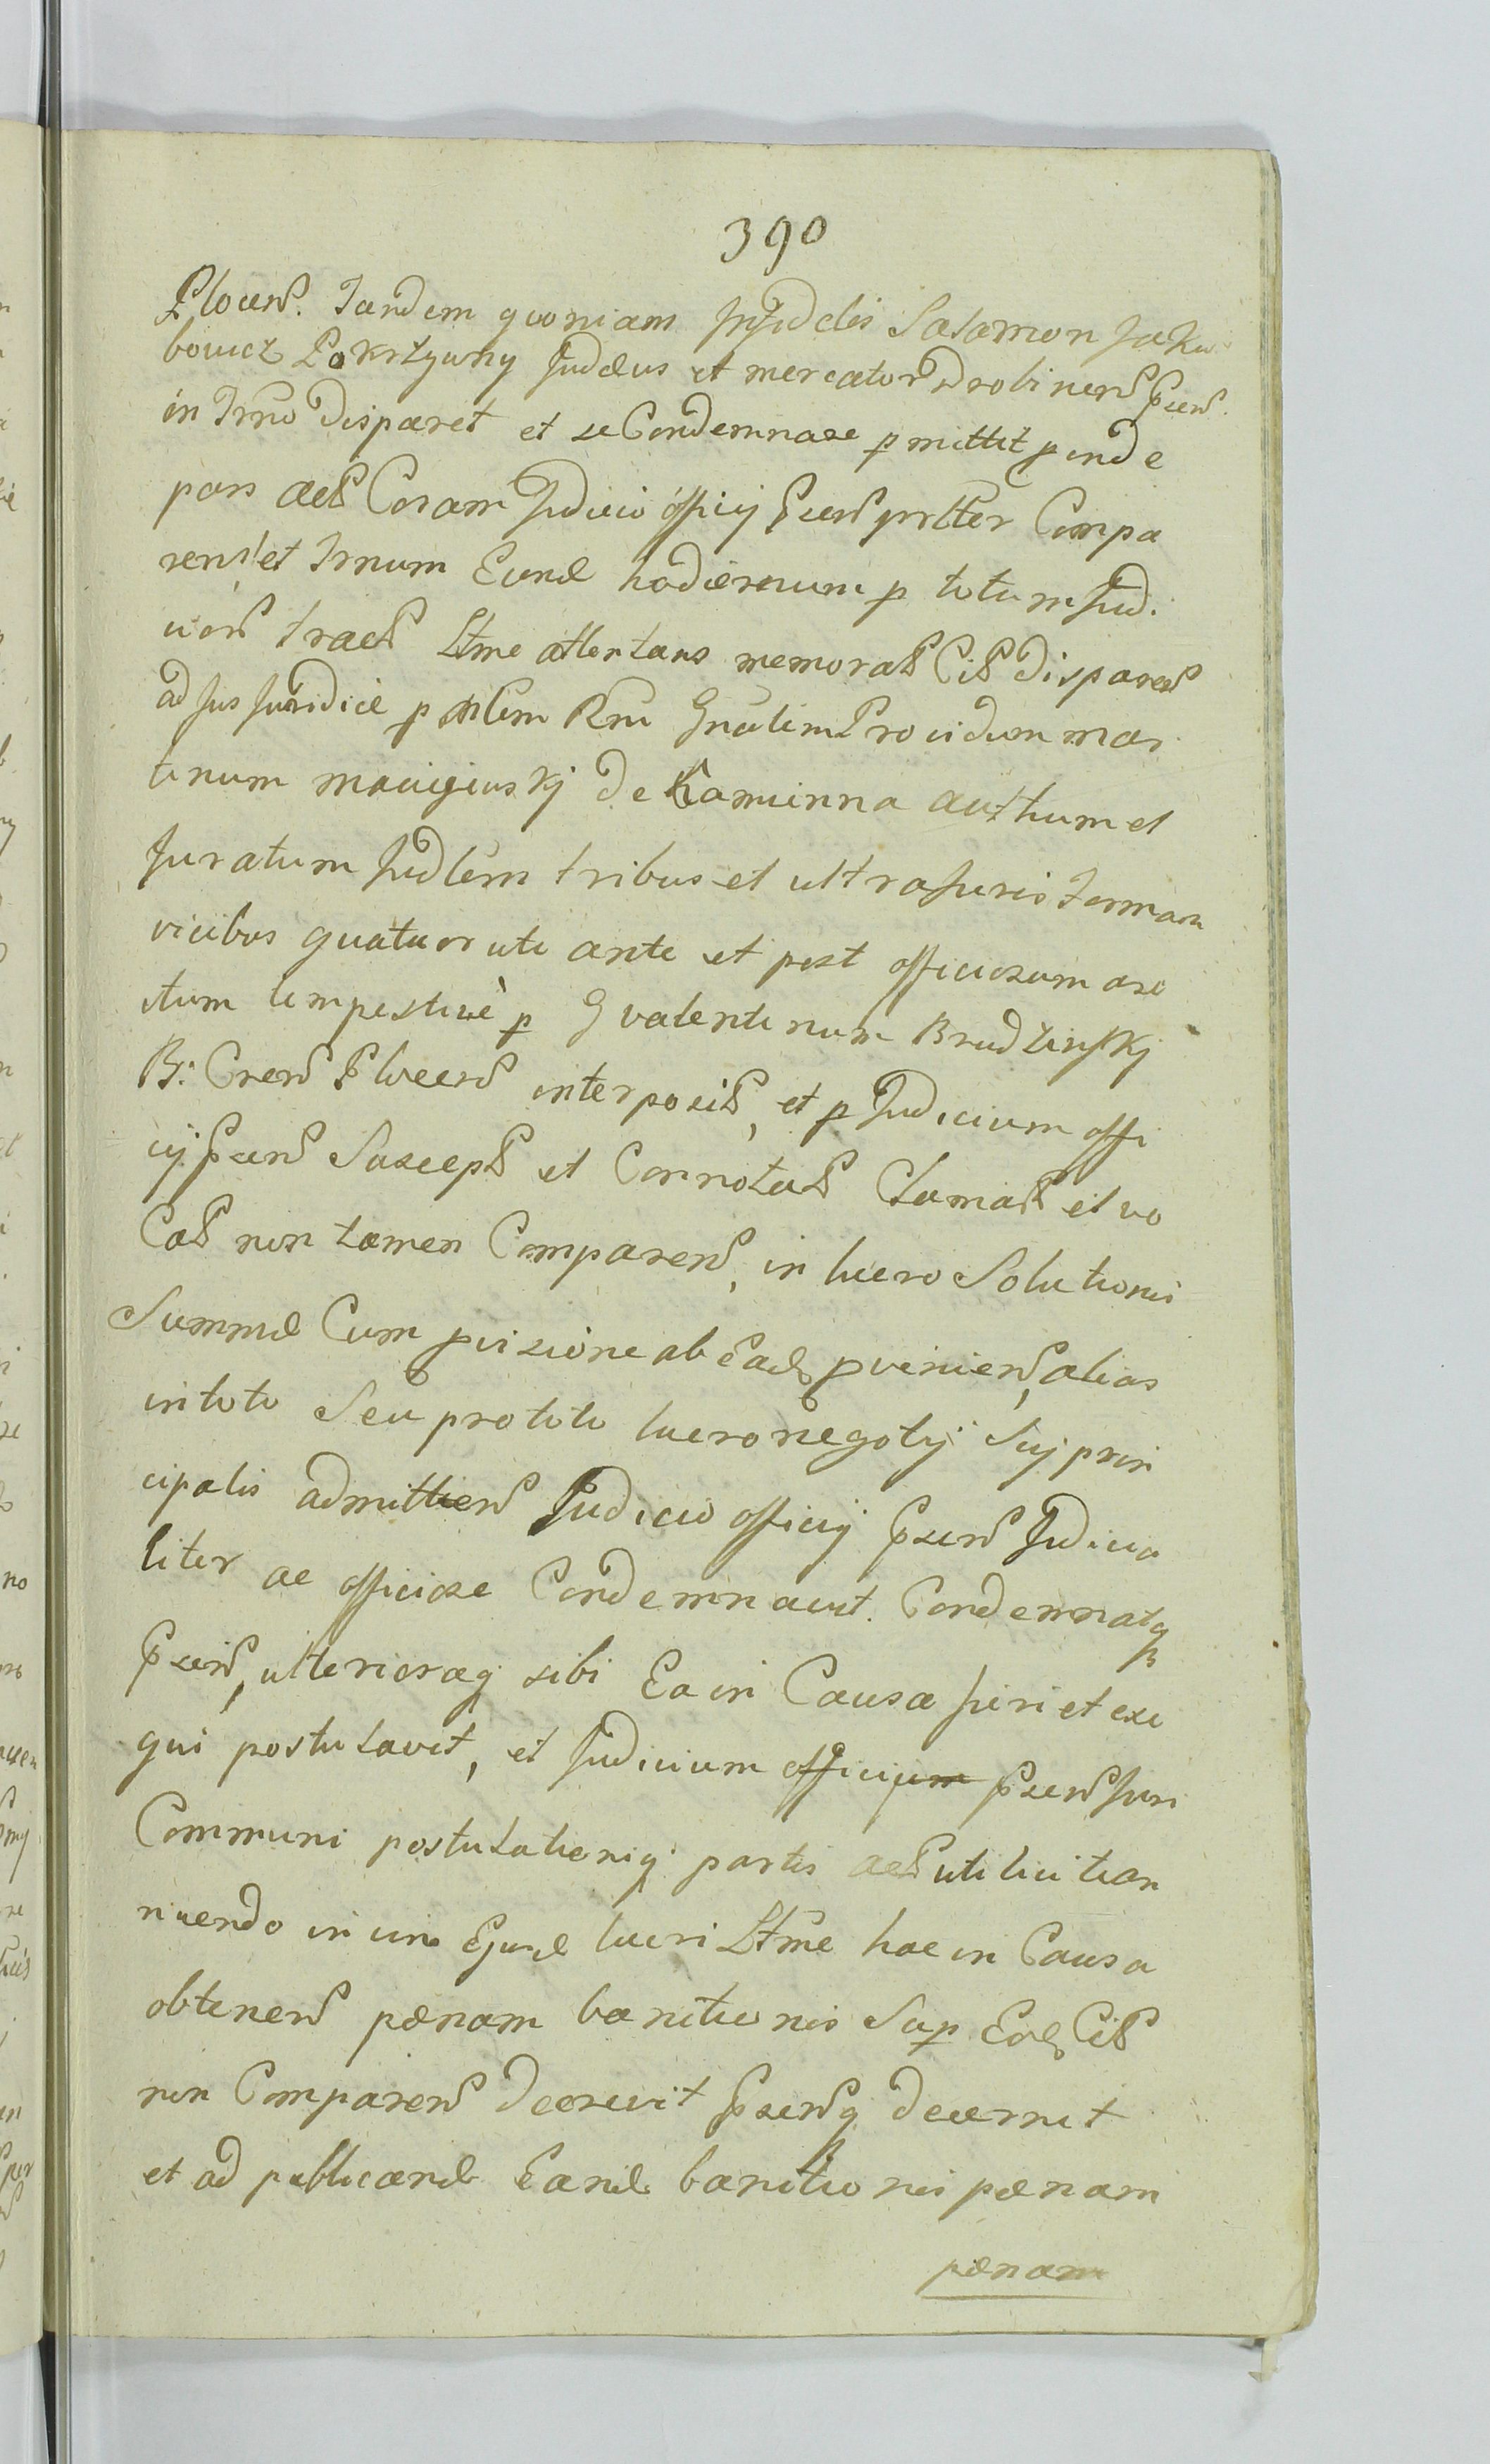 390
Plocen. Tandem quoniam Infidelis Salamon Jaku
bowicz Pokrzywny Judæus et mercator Drobinen Pscen.
in Trno Disparet et se Condemnare pmittit pinde
pars act Coram Judicio officij Pscen prltter Compa
rens et Trnum Eund hodiernum p totum Jud.
uon tract Ltme attentans memorat Cit Disparen
ad Jus Juridicè p Mlem Rni Gnalem Providum mar
tinum macigiuskj De Kamienna authum et
Juratum Judlem tribus et ultra Juris Terman
vicibus quatuor uti ante et post officiosum are
stum tempestivè p G valentinum Brudzinskj
B: Cren Plocen interposit, et p Judicium offi
cij Pscen Suscept et Connotat Clamat et vo
Cat non tamen Comparen, in lucro Solutionis
Summæ Cum pvisione ab Ead pvenien, alias
in toto Seu pro toto lucro negotij Suj prin
cipalis admitten Judicio officij Pscen Judicia
liter ac officiose Condemnavit. Condemnatq
Pscen, ulterioraq sibi Ea in Causa fieri et exe
qui postulavit, et Judicium officijum Pscen Juri
Communi postulationiq partis act uti licitæ an
nuendo in vim Ejusd lucri Ltme hac in Causa
obtenen pænam banitionis Sup Eod Cit
non Comparen Decrevit Pscenq decernit
et ad publicand Eand banitionis pænam
pænam